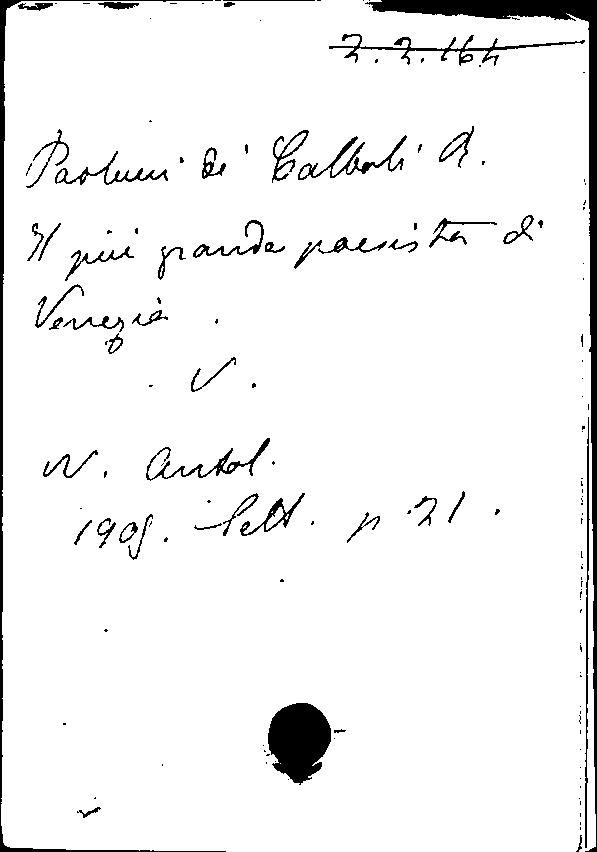 2.2.164
Paolucci de' Calboli R.
Il più grande paesista di
Venezia.
V.
N. Antol.
1909. Sett. p. 21.